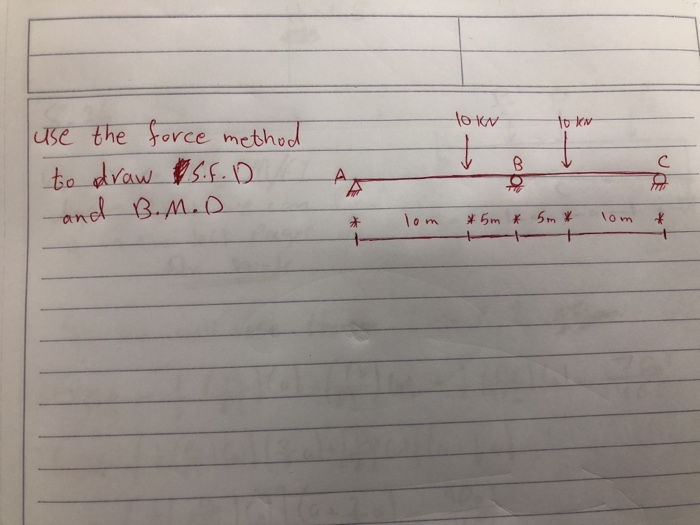 use the force method
to draw S.F.D
and B.M.D
10 KN 10 KN
A B C
* 10 m * 5m * 5m * 10m *